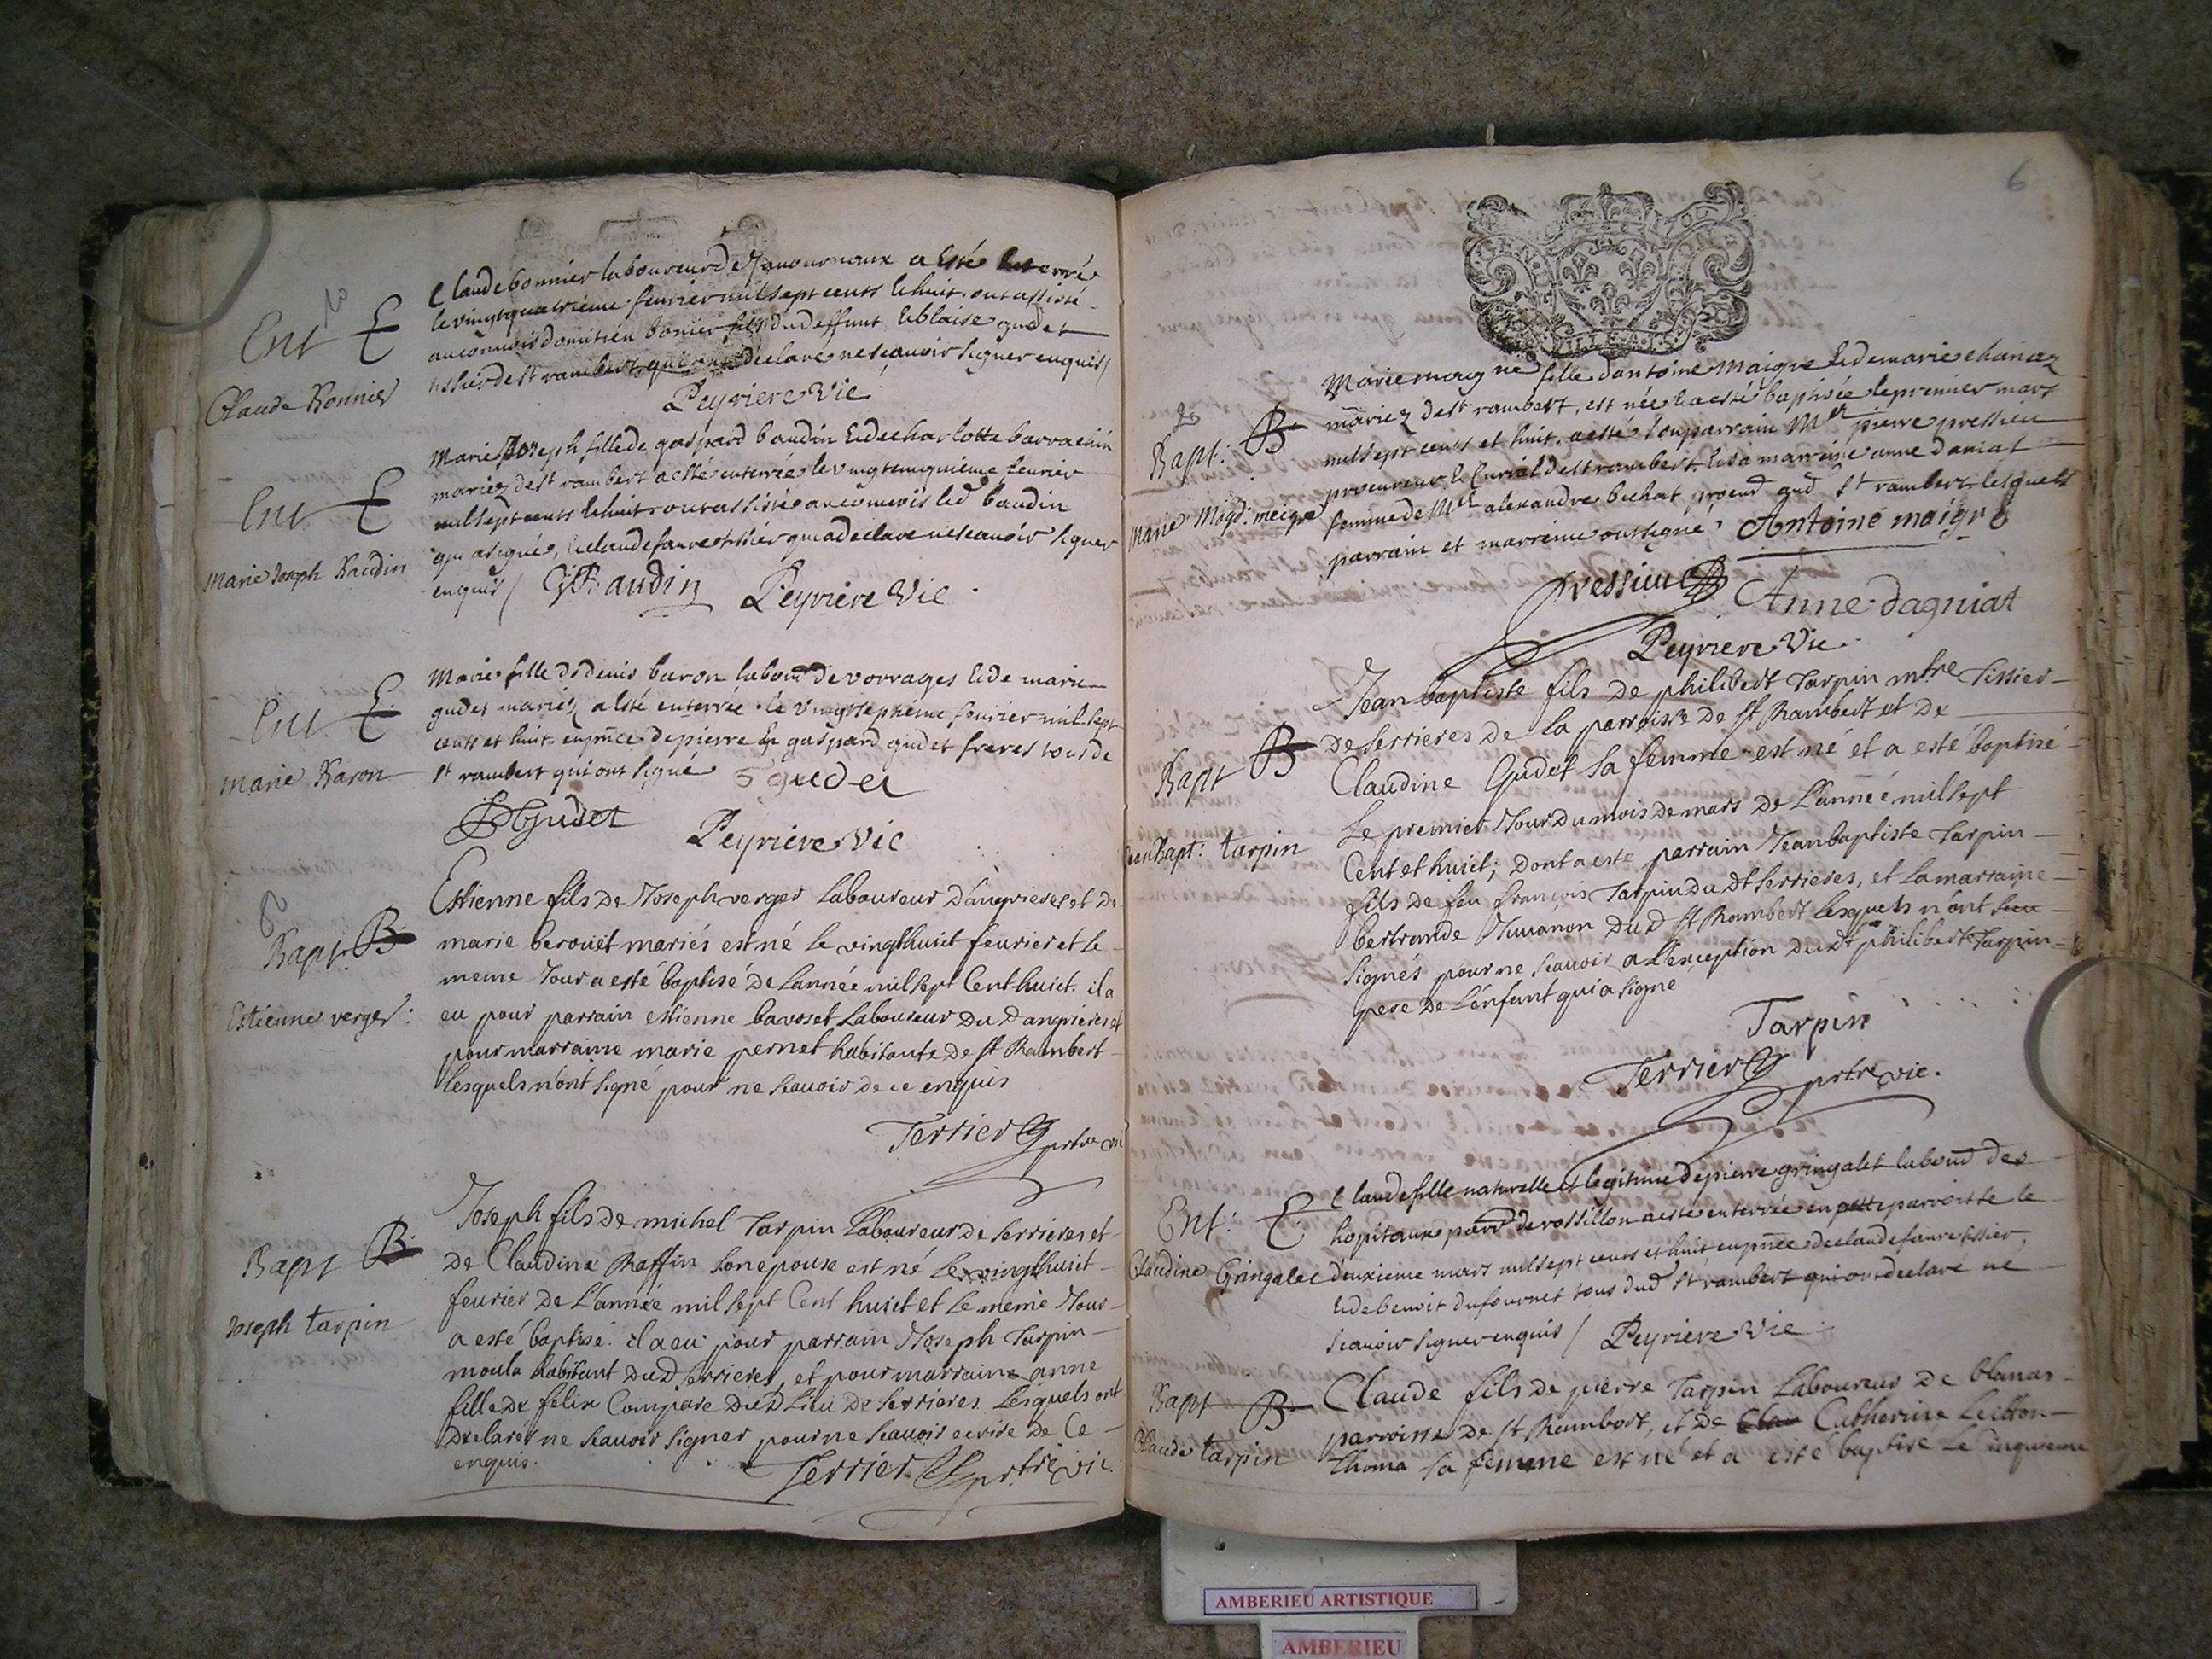 Ent E
Claude Bonnier
Claude bonnier laboureur de Jauournaux a esté enterré
le vingtquatrieme feurier mil sept cents & huit. ont assisté
au conuois domitien bonier fils dud deffunt & blaise gudet
tissier de st rambert qui ont declare ne sçauoir signer enquis /
Peyriere Vic
Ent E
Marie Joseph Baudin
Marie Joseph fille de gaspard baudin & de charlotte barrachin
mariez de st rambert a esté enterrée le vingtcinquieme feurier
mil sept cents & huit ont assisté au conuois led baudin
qui a signé, & claude faure tissier qui a declare ne scauoir signer
enquis / G Baudin Peyriere Vic
Ent. E
Marie Baron
Marie fille de denis baron labour de vorrages & de marie
gudet mariez a esté enterrée le vingtseptieme feurier mil sept
cents et huit en pnce de pierre & gaspard gudet freres tous de
st rambert qui ont signé Gudet
Gudet Peyriere Vic
Bapt. B
Estienne verger:
Estienne fils de Joseph verger Laboureur d'angrieres et de
marie berouet mariés est né le vingthuict feurier et le
meme Jour a esté baptisé de L'année mil sept Cent huict. il a
eu pour parrain estienne bavoset Laboureur du d angrieres et
pour marraine marie pernet habitante de st Rambert
lesquels n'ont signé pour ne scauoir de ce enquis
Terrier prtre vic
Bapt B
Joseph tarpin
Joseph fils de michel Tarpin Laboureur de serrieres et
de Claudine Raffin son epouse est né Le vingthuict
feurier de L'année mil sept Cent huict et Le meme Jour
a esté baptisé. il a eu pour parrain Joseph Tarpin
moula habitant dud serrieres, et pour marraine anne
fille de felix Compare dud Lieu de serrieres. Lesquels ont
declarés ne scauoir signer pour ne scauoir ecrire de Ce
enquis.
Terrier prtre vic.
6
GEN
Bapt: B
Marie Magd: meigre
Marie magne fille d'antoine Maigre & de marie chanaz
mariez de st rambert, est née & a esté baptisée le premier mars
mil sept cents et huit. a esté son parrain Mr pierre pressieu
procureur & Curial de st rambert & sa marreine anne daniat
femme de Mr alexandre bichat procud aud st rambert lesquels
parrain et marreine ont signé. Antoine maigre
Pressieu Anne dagniat
Peyriere Vic
Bapt B
Jean Bapt: tarpin
Jean baptiste fils de philibert Tarpin mtre Tissier
de serrieres de la parroisse de st Rambert et de
Claudine Gudet sa femme est né et a esté baptisé
Le premier Jour du mois de mars de L'année mil sept
Cent et huict; dont a esté parrain Jean baptiste Tarpin
fils de feu françois Tarpin du dt serrieres, et La marraine
bertrande Juuanon dud st Rambert Lesquels n'ont
signés pour ne scauoir a L'exception du dt philibert Tarpin
pere de L'enfant qui a signé
Tarpin
Terrier prtre vic.
Ent: E
Claudine Gringalet
Claude fille naturelle & legitime de pierre gringalet labour des
hopitaux parr de rossillon a esté enterrée en cette parroisse le
deuxieme mars mil sept cents et huit en pnce de claude faure tissier,
& de benoit dufournet tous dud st rambert qui ont declaré ne
scauoir signer enquis / Peyriere Vic
Bapt B
Claude tarpin
Claude fils de pierre Tarpin Laboureur de blanas
parroisse de st Rambert, et de Catherine
thoma sa femme est né et a esté baptisé Le Cinquieme
AMBERIEU ARTISTIQUE
AMBERIEU